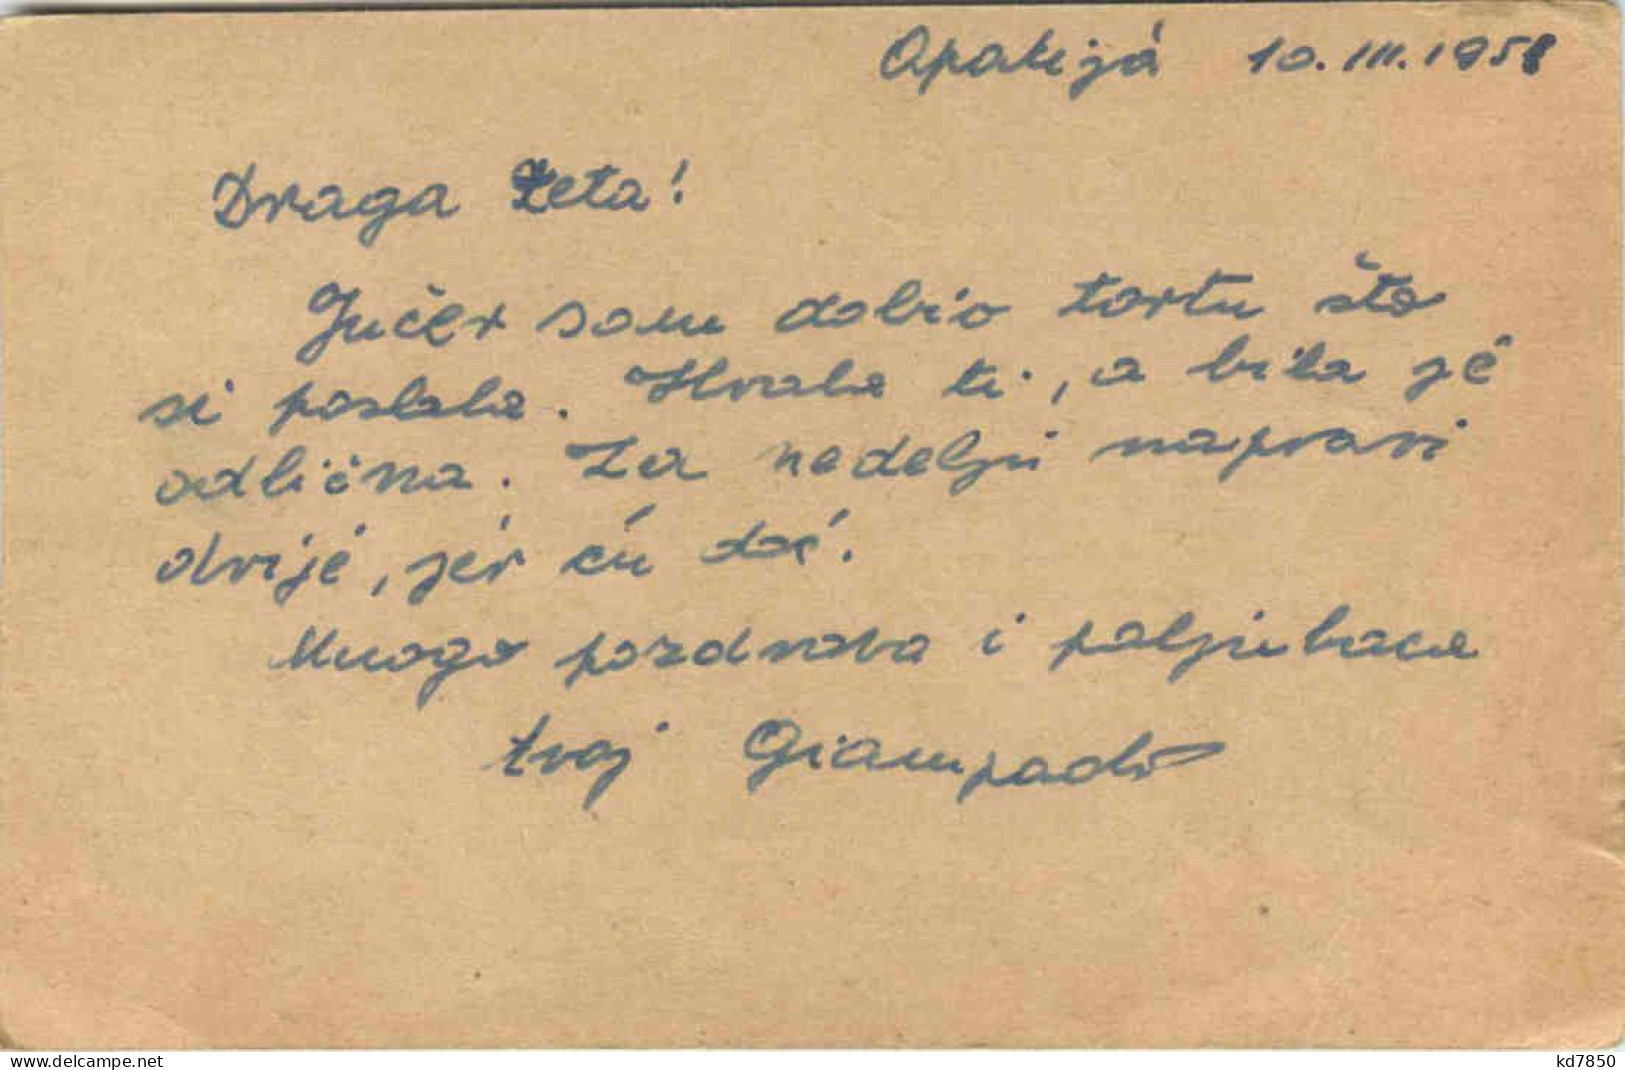 Opatija 10.III.1958
Draga Zeta!
Jučer sam dobio tortu što
si poslala. Hvala ti, a bila je
odlična. Za nedelju napravi
dvije, jer ću doć.
Mnogo pozdrava i poljubaca
tvoj Giampaolo
www.delcampe.net
kd7850